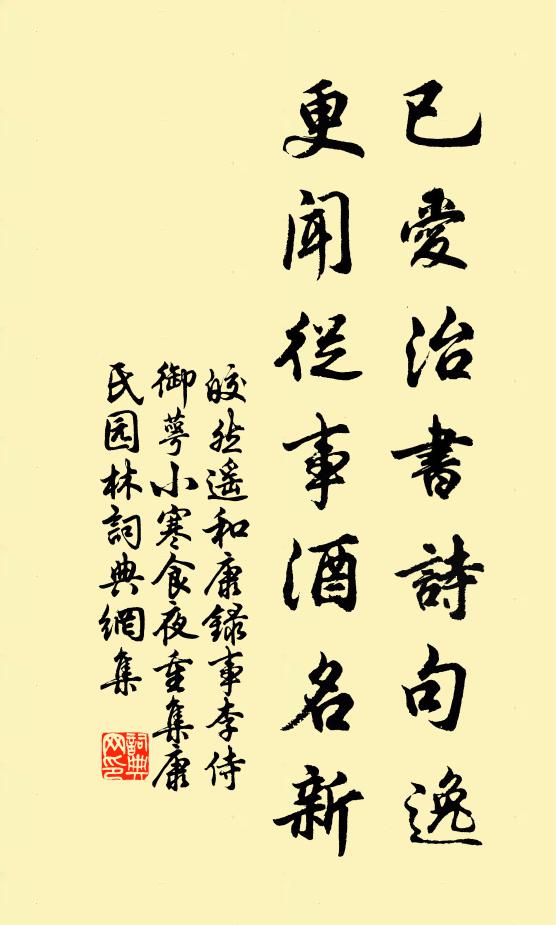 已愛治書詩句逸
更聞從事酒名新
皎然遥和康錄事李侍
御萼小寒食夜重集康
氏园林詞典網集
詞典网印